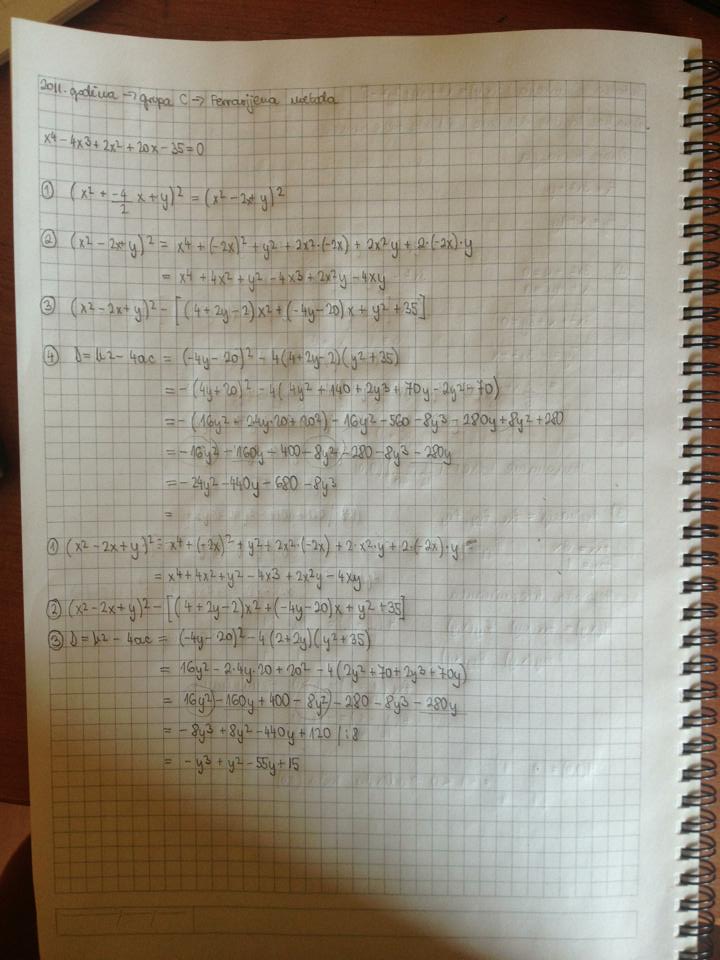 2011. godina → grupa C → Ferrarijena metoda
x⁴ - 4x³ + 2x² + 20x - 35 = 0
① (x² + -4/2 x + y)² = (x² - 2x + y)²
② (x² - 2x + y)² = x⁴ + (-2x)² + y² + 2x²·(-2x) + 2x²y + 2·(-2x)·y
= x⁴ + 4x² + y² - 4x³ + 2x²y - 4xy
③ (x² - 2x + y)² - [(4 + 2y - 2)x² + (-4y - 20)x + y² + 35]
④ D = b² - 4ac = (-4y - 20)² - 4(4 + 2y - 2)(y² + 35)
= -(4y + 20)² - 4(4y² + 140 + 2y³ + 70y - 2y² - 70)
= -(16y² + 24y·20 + 20²) - 16y² - 560 - 8y³ - 280y + 8y² + 280
= -16y² - 160y - 400 - 8y² - 280 - 8y³ - 280y
= -24y² - 440y - 680 - 8y³
=
① (x² - 2x + y)² = x⁴ + (-2x)² + y² + 2x²·(-2x) + 2·x²·y + 2·(-2x)·y =
= x⁴ + 4x² + y² - 4x³ + 2x²y - 4xy
② (x² - 2x + y)² - [(4 + 2y - 2)x² + (-4y - 20)x + y² + 35]
③ D = b² - 4ac = (-4y - 20)² - 4(2 + 2y)(y² + 35)
= 16y² - 2·4y·20 + 20² - 4(2y² + 70 + 2y³ + 70y)
= 16y² - 160y + 400 - 8y² - 280 - 8y³ - 280y
= -8y³ + 8y² - 440y + 120 /:8
= -y³ + y² - 55y + 15